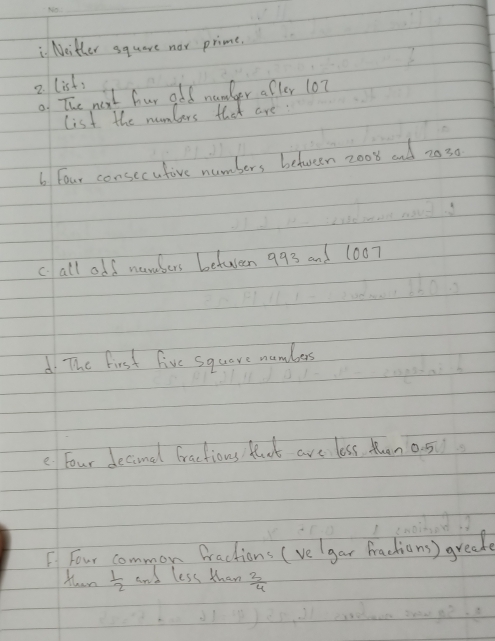 i. Neither square nor prime.
2. List:
a. The next four odd number after 107
List the numbers that are:
b. Four consecutive numbers between 2008 and 2030
c. all odd numbers between 993 and 1007
d. The first five square numbers
e. Four decimal fractions that are less than 0.5
F. Four common fractions (velgar fractions) greate
than 1/2 and less than 3/4